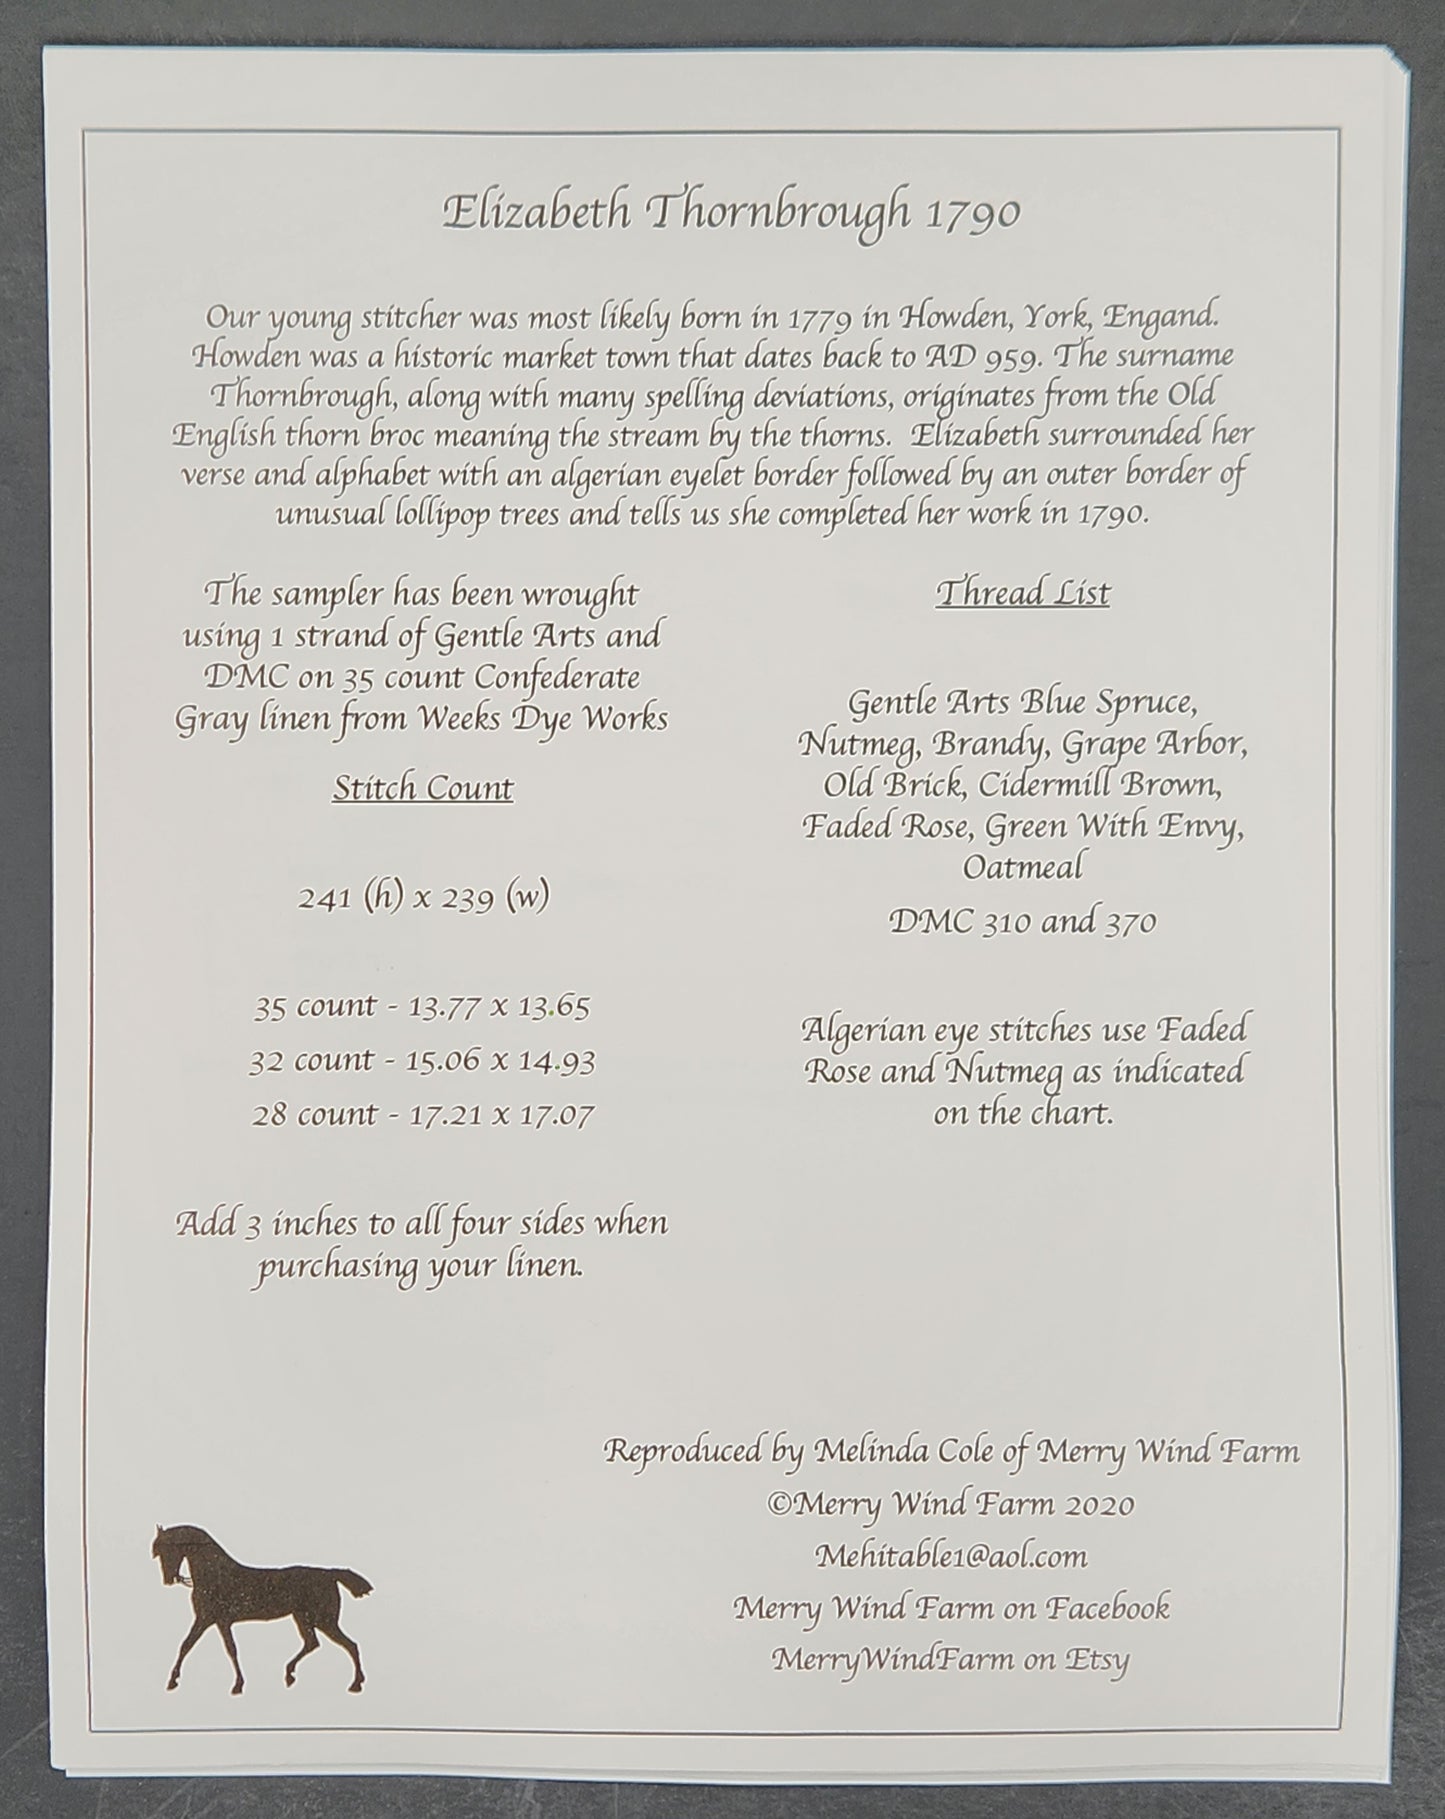 Elizabeth Thornbrough 1790
Our young stitcher was most likely born in 1779 in Howden, York, Engand.
Howden was a historic market town that dates back to AD 959. The surname
Thornbrough, along with many spelling deviations, originates from the Old
English thorn broc meaning the stream by the thorns. Elizabeth surrounded her
verse and alphabet with an algerian eyelet border followed by an outer border of
unusual lollipop trees and tells us she completed her work in 1790.
The sampler has been wrought
using 1 strand of Gentle Arts and
DMC on 35 count Confederate
Gray linen from Weeks Dye Works
Stitch Count
241 (h) x 239 (w)
35 count - 13.77 x 13.65
32 count - 15.06 x 14.93
28 count - 17.21 x 17.07
Add 3 inches to all four sides when
purchasing your linen.
Thread List
Gentle Arts Blue Spruce,
Nutmeg, Brandy, Grape Arbor,
Old Brick, Cidermill Brown,
Faded Rose, Green With Envy,
Oatmeal
DMC 310 and 370
Algerian eye stitches use Faded
Rose and Nutmeg as indicated
on the chart.
Reproduced by Melinda Cole of Merry Wind Farm
©Merry Wind Farm 2020
Mehitable1@aol.com
Merry Wind Farm on Facebook
MerryWindFarm on Etsy